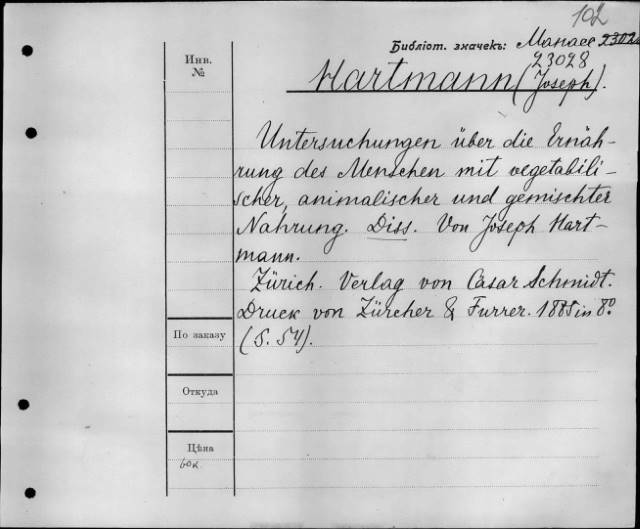 102
Библіот. значекъ: Манасе 2302
Инв.
№
23028
Hartmann (Joseph).
Untersuchungen über die Ernäh-
rung des Menschen mit vegetabili-
scher, animalischer und gemischter
Nahrung. Diss. Von Joseph Hart-
mann.
Zürich. Verlag von Cäsar Schmidt.
Druck von Zürcher & Furrer. 1885 in 8º
(S. 54).
По заказу
Откуда
Цѣна
60к.